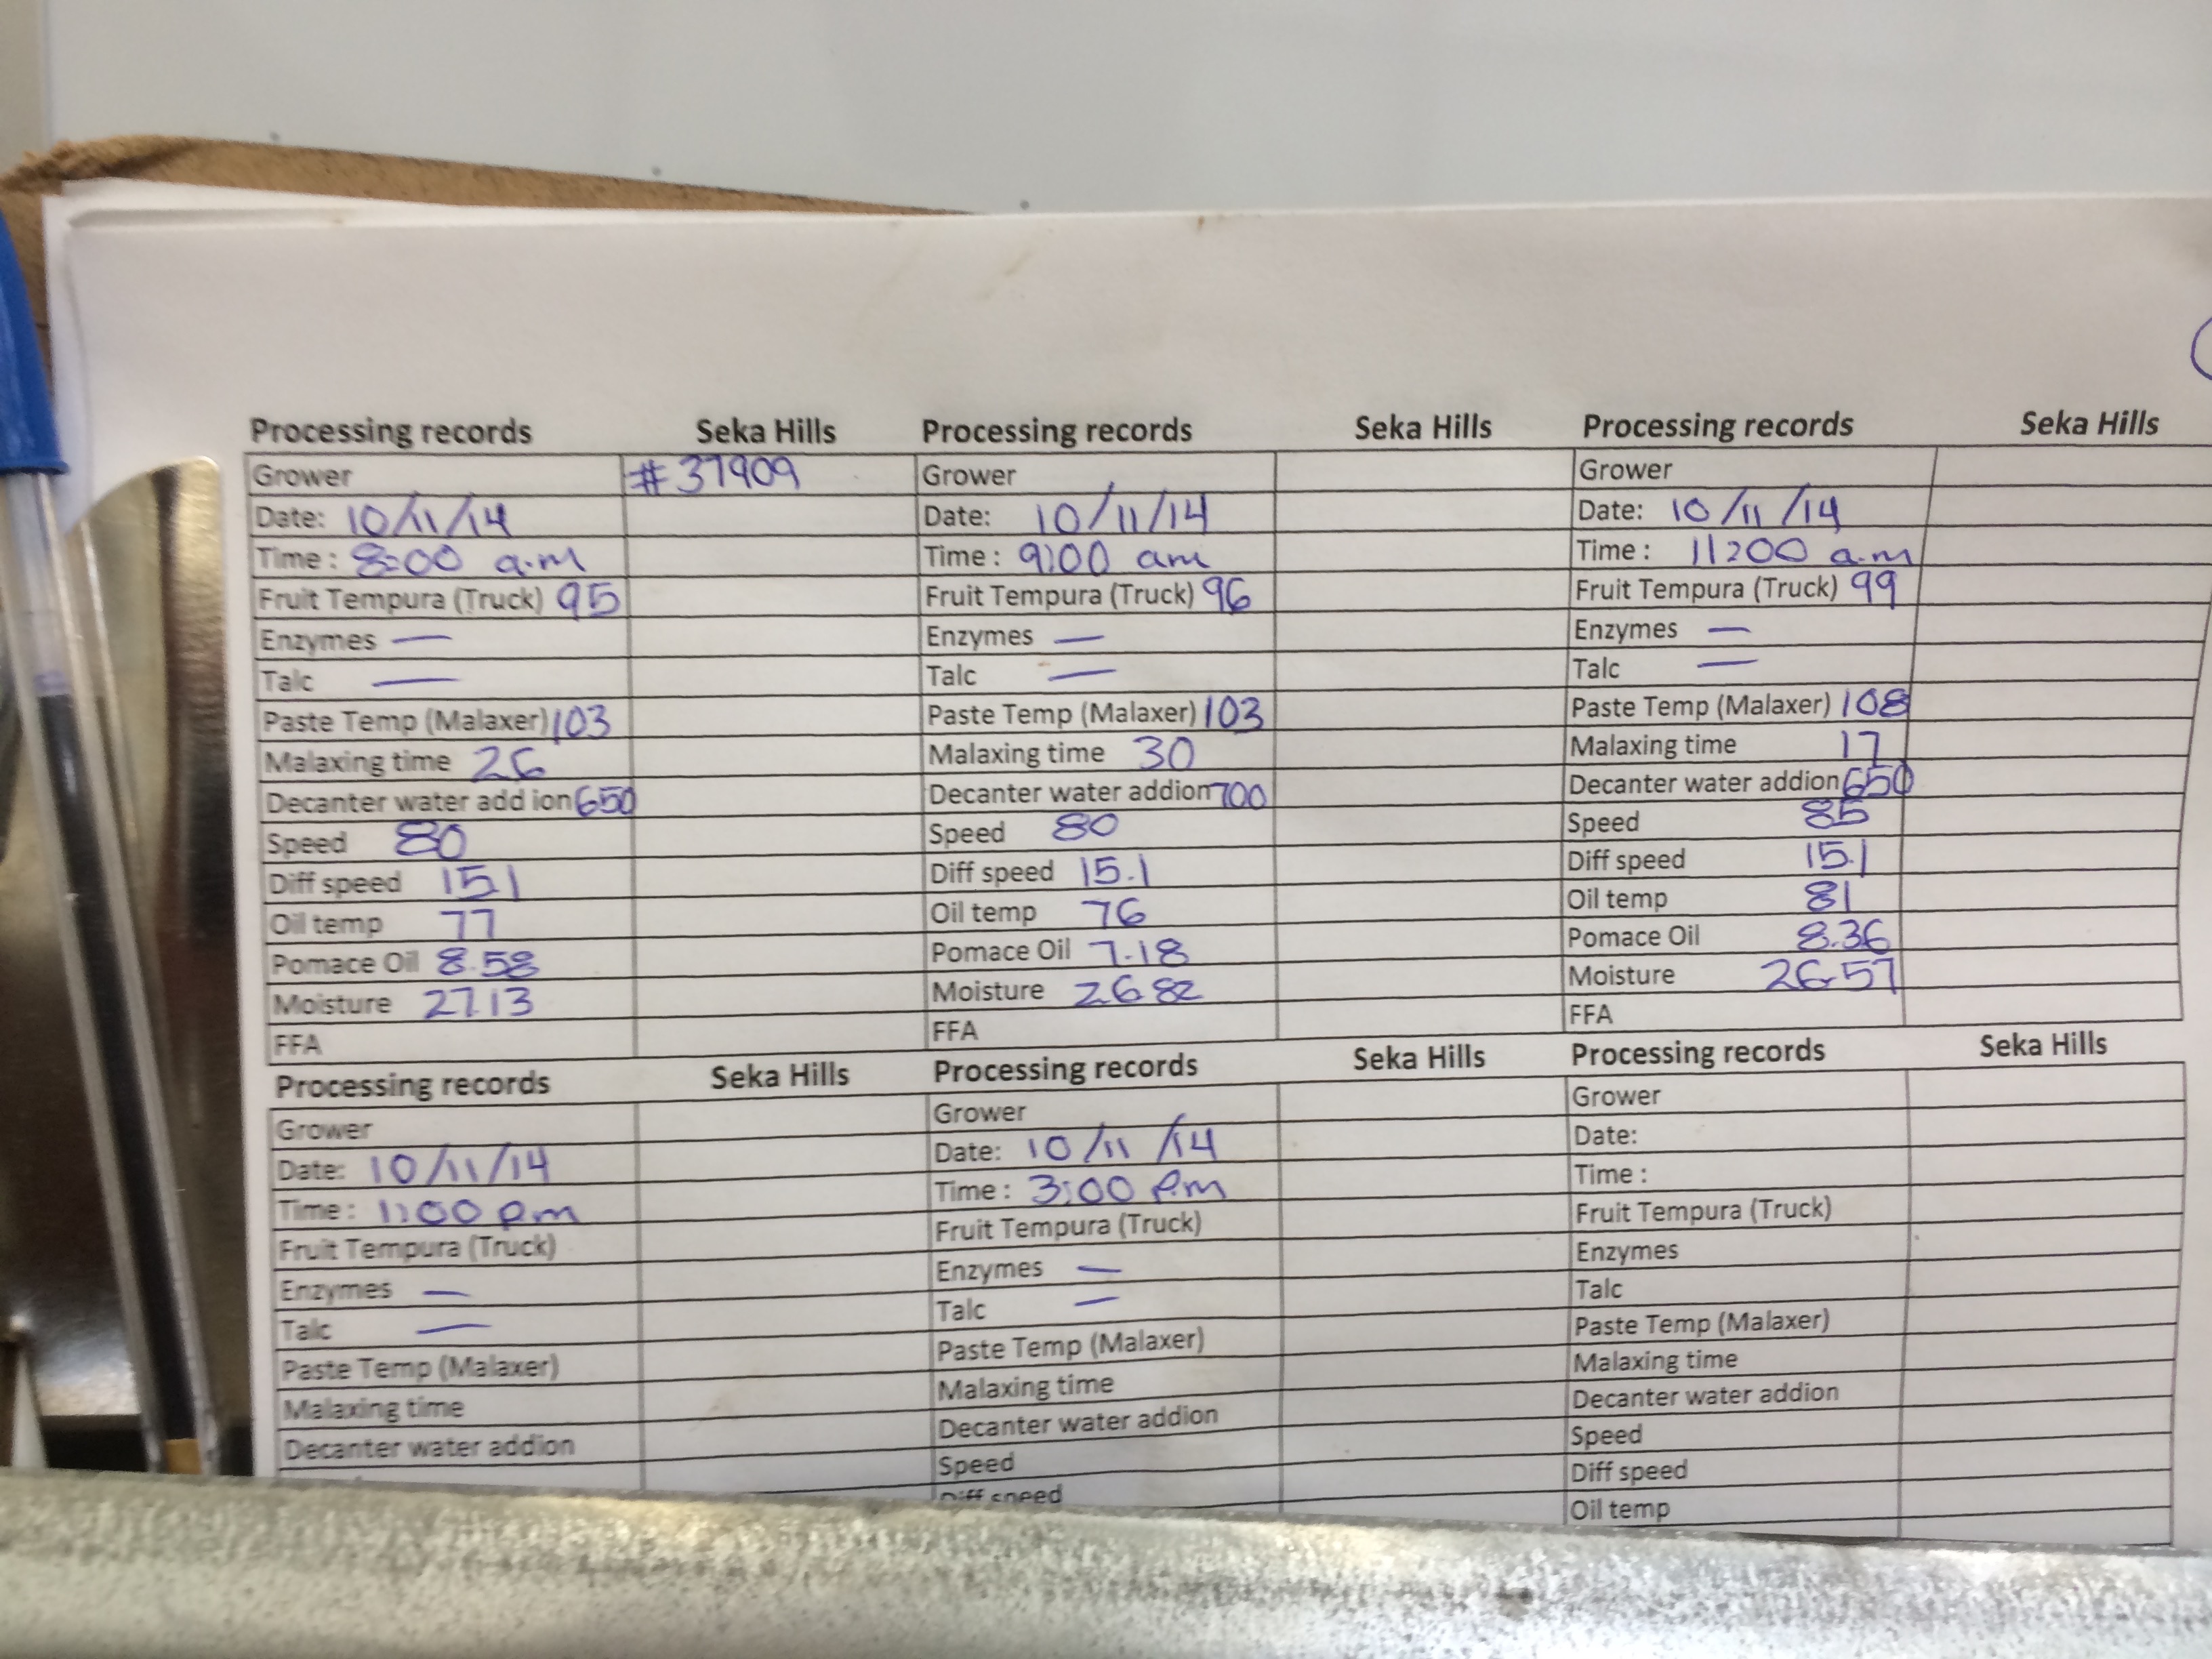 Processing records Seka Hills
Grower #37909
Date: 10/11/14
Time : 8:00 a.m
Fruit Tempura (Truck) 95
Enzymes —
Talc —
Paste Temp (Malaxer) 103
Malaxing time 26
Decanter water add ion 650
Speed 80
Diff speed 15.1
Oil temp 77
Pomace Oil 8.58
Moisture 27.13
FFA
Processing records Seka Hills
Grower
Date: 10/11/14
Time : 9:00 am
Fruit Tempura (Truck) 96
Enzymes —
Talc —
Paste Temp (Malaxer) 103
Malaxing time 30
Decanter water addion 700
Speed 80
Diff speed 15.1
Oil temp 76
Pomace Oil 7.18
Moisture 26.82
FFA
Processing records Seka Hills
Grower
Date: 10/11/14
Time : 11:00 a.m
Fruit Tempura (Truck) 99
Enzymes —
Talc —
Paste Temp (Malaxer) 108
Malaxing time 17
Decanter water addion 650
Speed 85
Diff speed 15.1
Oil temp 81
Pomace Oil 8.36
Moisture 26.57
FFA
Processing records Seka Hills
Grower
Date: 10/11/14
Time : 1:00 pm
Fruit Tempura (Truck)
Enzymes —
Talc —
Paste Temp (Malaxer)
Malaxing time
Decanter water addion
Processing records Seka Hills
Grower
Date: 10/11/14
Time : 3:00 P.m
Fruit Tempura (Truck)
Enzymes —
Talc —
Paste Temp (Malaxer)
Malaxing time
Decanter water addion
Speed
Diff speed
Processing records Seka Hills
Grower
Date:
Time :
Fruit Tempura (Truck)
Enzymes
Talc
Paste Temp (Malaxer)
Malaxing time
Decanter water addion
Speed
Diff speed
Oil temp